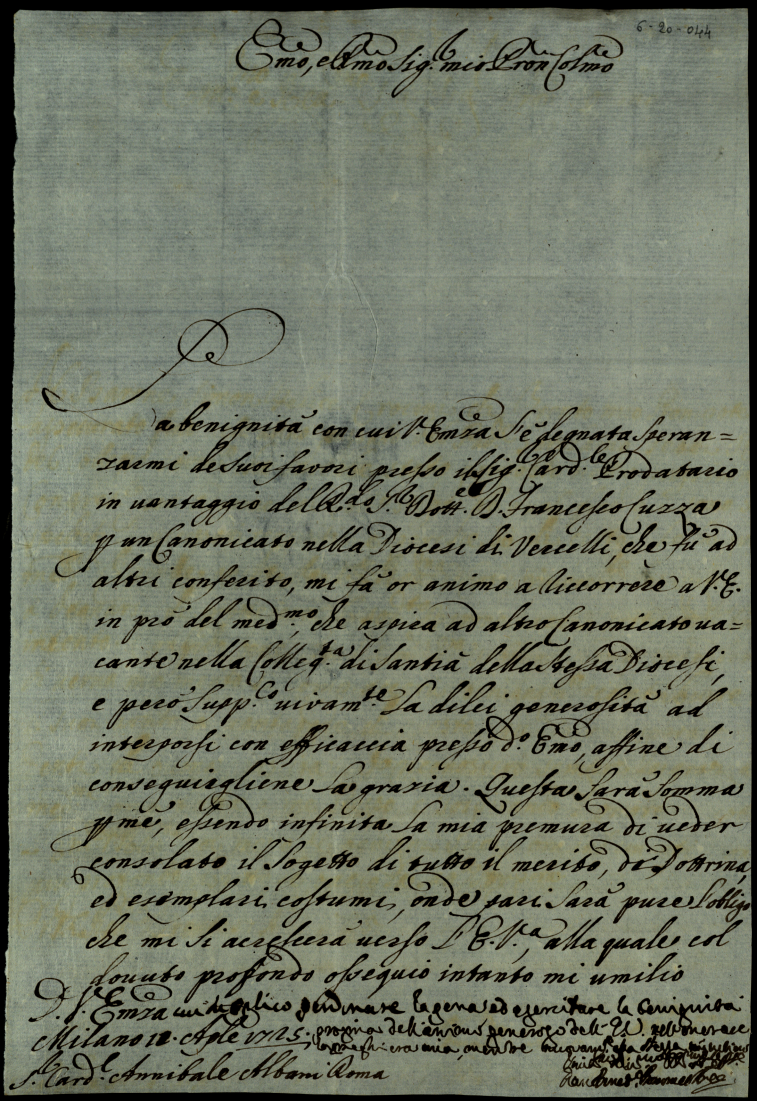 6-20-044
Emo, e Rmo Sig.r mio Pron Colmo
La benignità con cui V. Emza s'è degnata speran=
zarmi de suoi favori presso il Sig.r Card.le Prodatario
in vantaggio del R.do S.r Dott.e D. Francesco Cuzza
p un Canonicato nella Diocesi di Vercelli, che fù ad
altri conferito, mi fà or animo a riccorrere a V. E.
in prò del med.mo, che aspira ad altro Canonicato va=
cante nella Colleg.ta di Santià della stessa Diocesi,
e però supp.co vivam.te la di lei generosità ad
interporsi con efficaccia presso d.o Emo, affine di
conseguirgliene la grazia. Questa sarà somma
p me, essendo infinita la mia premura di veder
consolato il sogetto di tutto il merito, di Dottrina,
ed esemplari costumi, onde pari sarà pure l'obligo
che mi si accrescerà verso l'E. V.a, alla quale col
dovuto profondo ossequio intanto mi umilio
D. V. Emza cui suplico perdonare la pena ad esercitare la benignità
Milano 12. Aple 1725. propria dell'animo generoso dell' EV. nell'onorare
mia
S.r Card.l Annibale Albani Roma